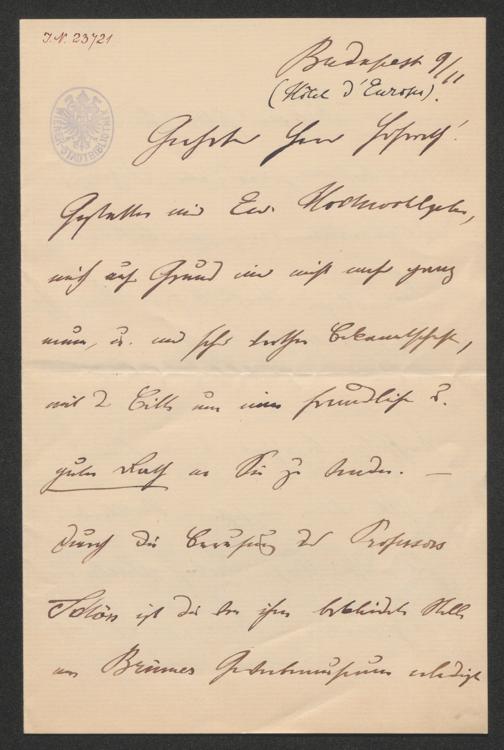 J.N. 23721
Budapest 9/11
(Hôtel d'Europe).
WIENER STADTBIBLIOTHEK
Geehrter Herr Hofrath!
Gestatten mir Ew. Hochwohlgeb.,
mich auf Grund einer nicht mehr ganz
neuen, u. mir sehr werthen Bekanntschaft,
mit d. Bitte um einen freundlichen u.
guten Rath an Sie zu wenden. —
Durch die Berufung des Professors
ist die von ihm bekleidete Stelle
am Brünner Gewerbemuseum erledigt